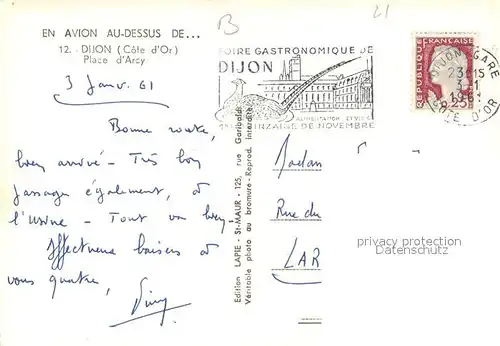 EN AVION AU-DESSUS DE...
12. - DIJON (Côte d'Or)
Place d'Arcy
3 Janv. 61
Bonne route,
bien arrivé - Très bon
passage également, à
l'usine - Tout va bien
Affectueux baisers à
vous quatre,
B
21
FOIRE GASTRONOMIQUE DE
DIJON
ALIMENTATION ET VINS
1ère QUINZAINE DE NOVEMBRE
RÉPUBLIQUE FRANÇAISE
0.25
DIJON GARE
23H15
3 - 1
196
CÔTE D'OR
Edition LAPIE - St-MAUR - 125, rue Garibaldi
Véritable photo au bromure - Reprod. interdite
Madam
Rue du
LAR
privacy protection
Datenschutz